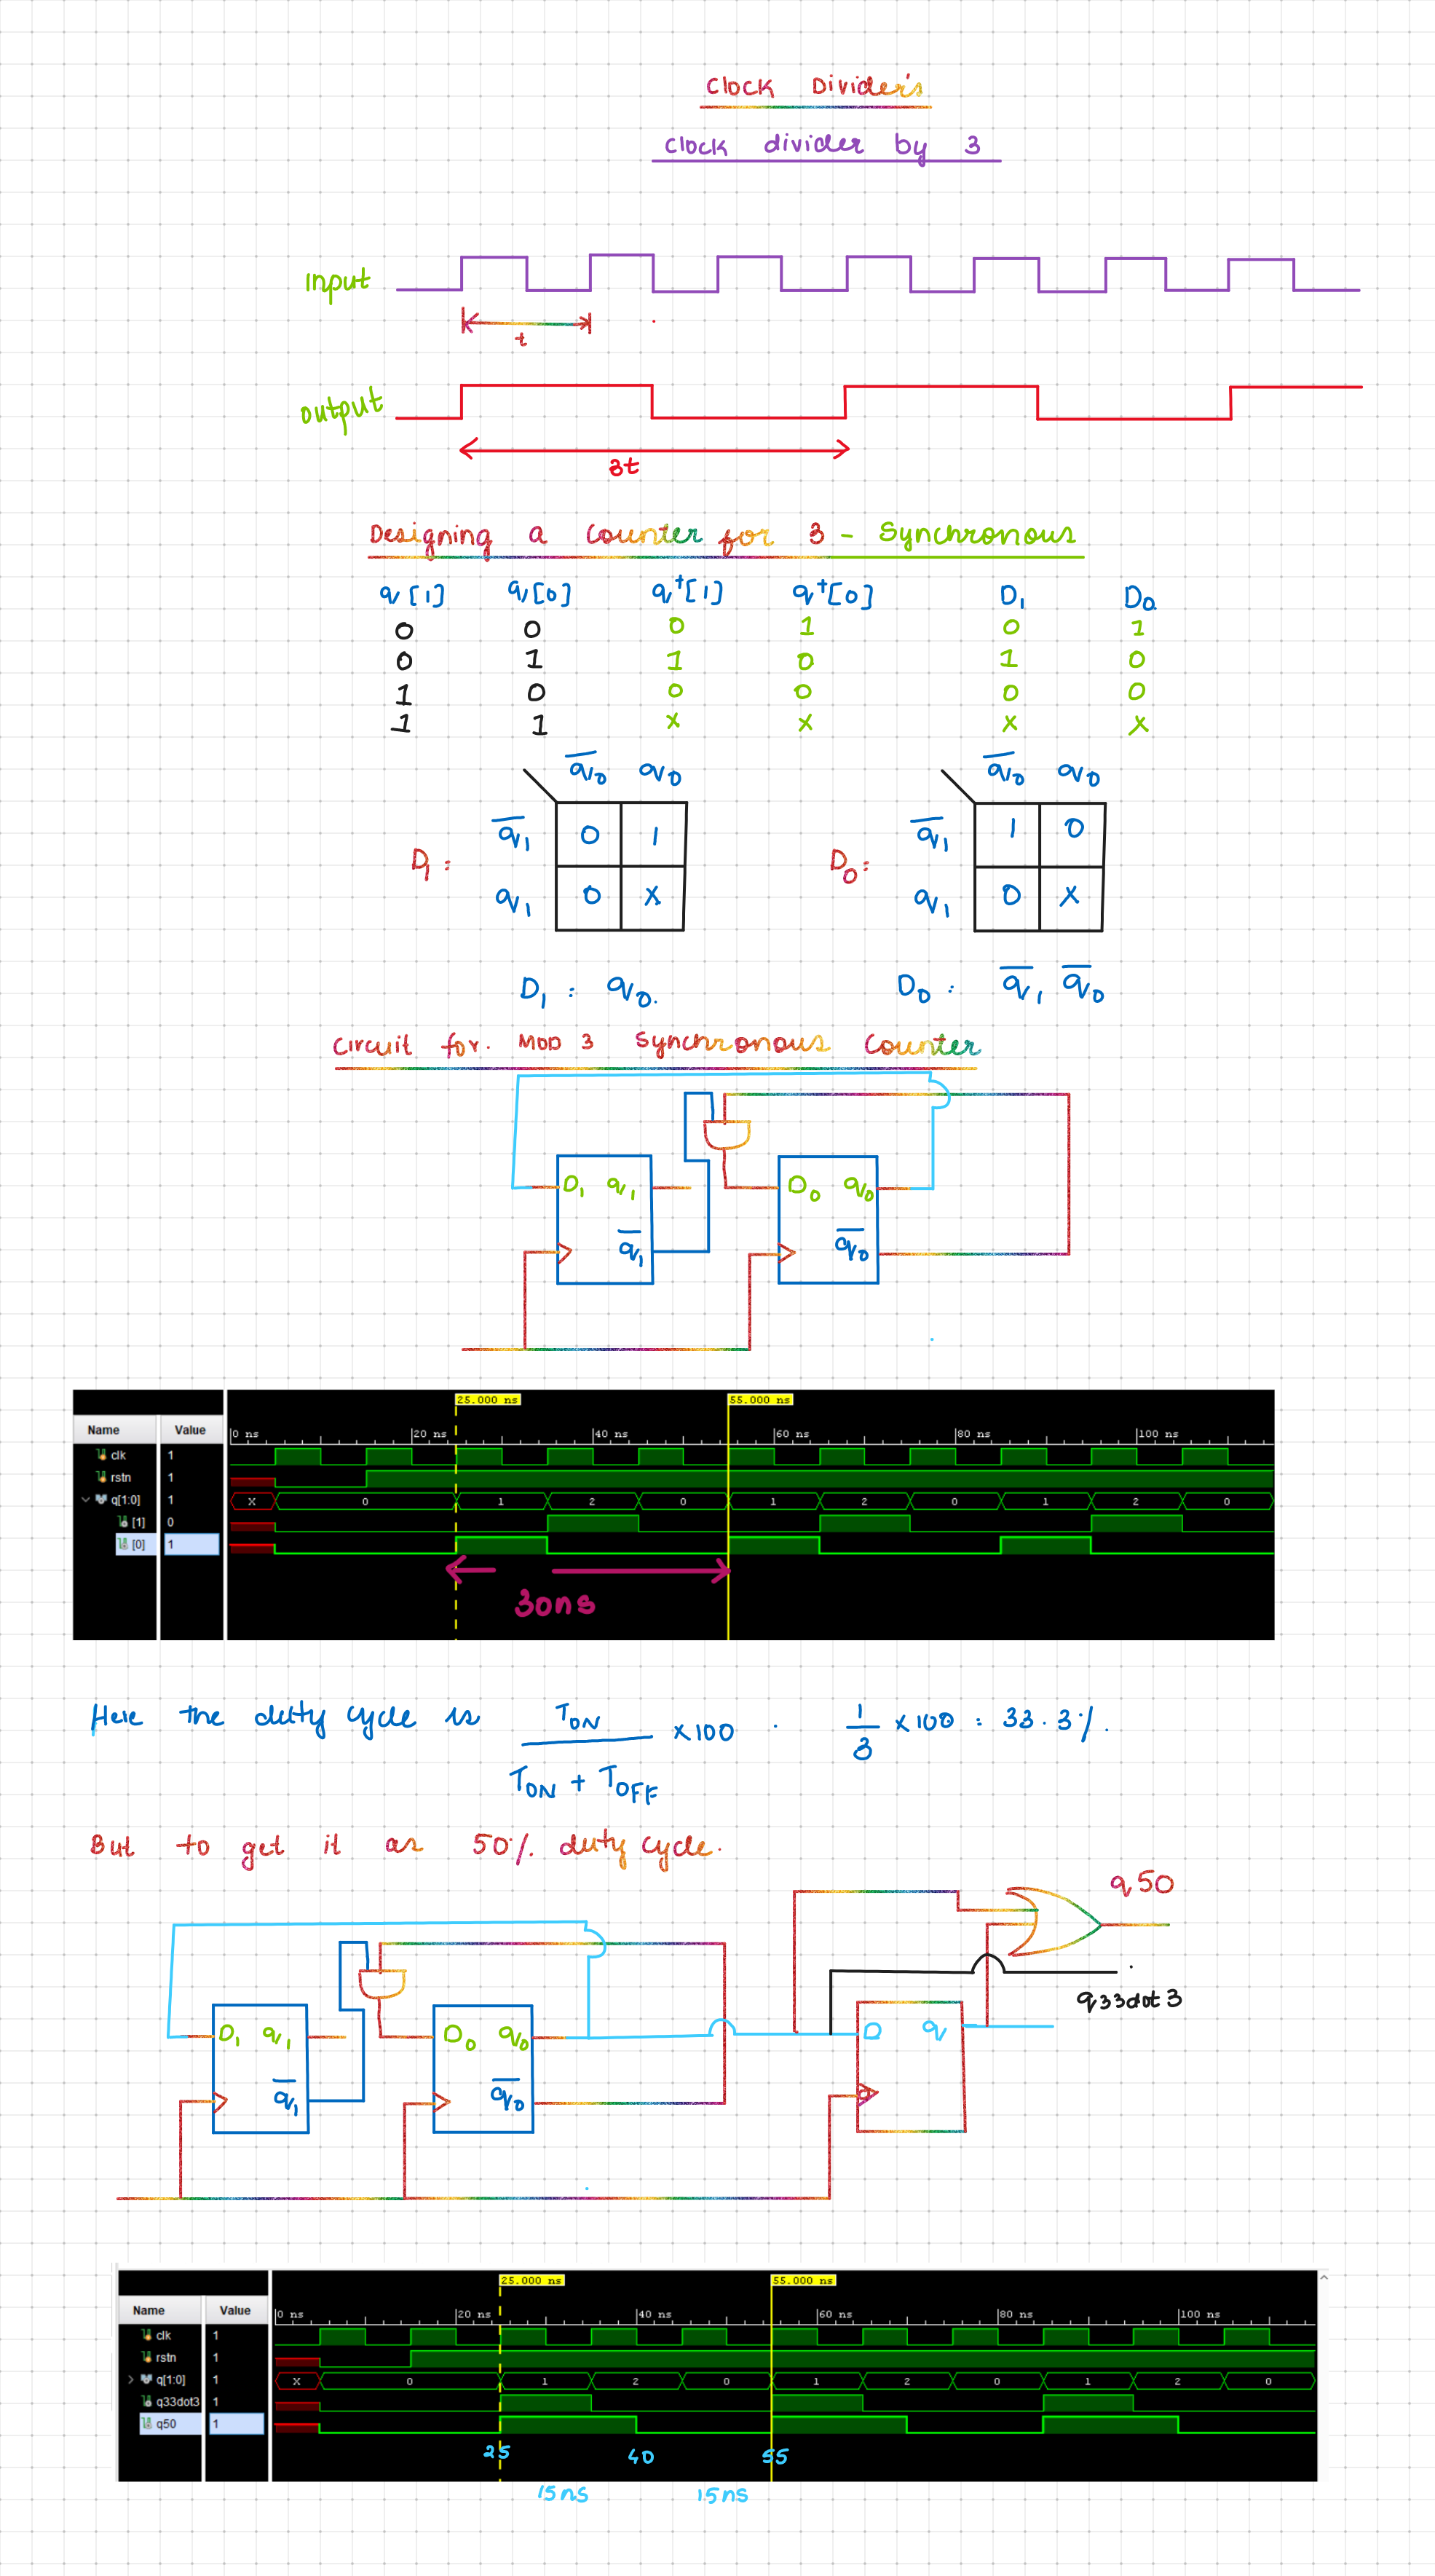 Clock Divider's
Clock divider by 3
Input
t
output
3t
Designing a Counter for 3 - Synchronous
q[1] q[0] q⁺[1] q⁺[0] D₁ D₀
0 0 0 1 0 1
0 1 1 0 1 0
1 0 0 0 0 0
1 1 x x x x
q̅₀ q₀ q̅₀ q₀
q̅₁ 0 1 q̅₁ 1 0
D₁ : D₀ :
q₁ 0 x q₁ 0 x
D₁ : q₀. D₀ : q̅₁ q̅₀
Circuit for. MOD 3 Synchronous Counter
D₁ q₁ D₀ q₀
q̅₁ q̅₀
25.000 ns 55.000 ns
Name Value 0 ns 20 ns 40 ns 60 ns 80 ns 100 ns
clk 1
rstn 1
q[1:0] 1 X 0 1 2 0 1 2 0 1 2 0
[1] 0
[0] 1
30ns
Here the dutty cycle is T_ON / T_ON + T_OFF ×100 . 1/3 ×100 : 33.3%.
But to get it as 50% duty cycle.
q50
q33dot3
D₁ q₁ D₀ q₀ D q
q̅₁ q̅₀
25.000 ns 55.000 ns
Name Value 0 ns 20 ns 40 ns 60 ns 80 ns 100 ns
clk 1
rstn 1
q[1:0] 1 X 0 1 2 0 1 2 0 1 2 0
q33dot3 1
q50 1
25 40 55
15ns 15ns